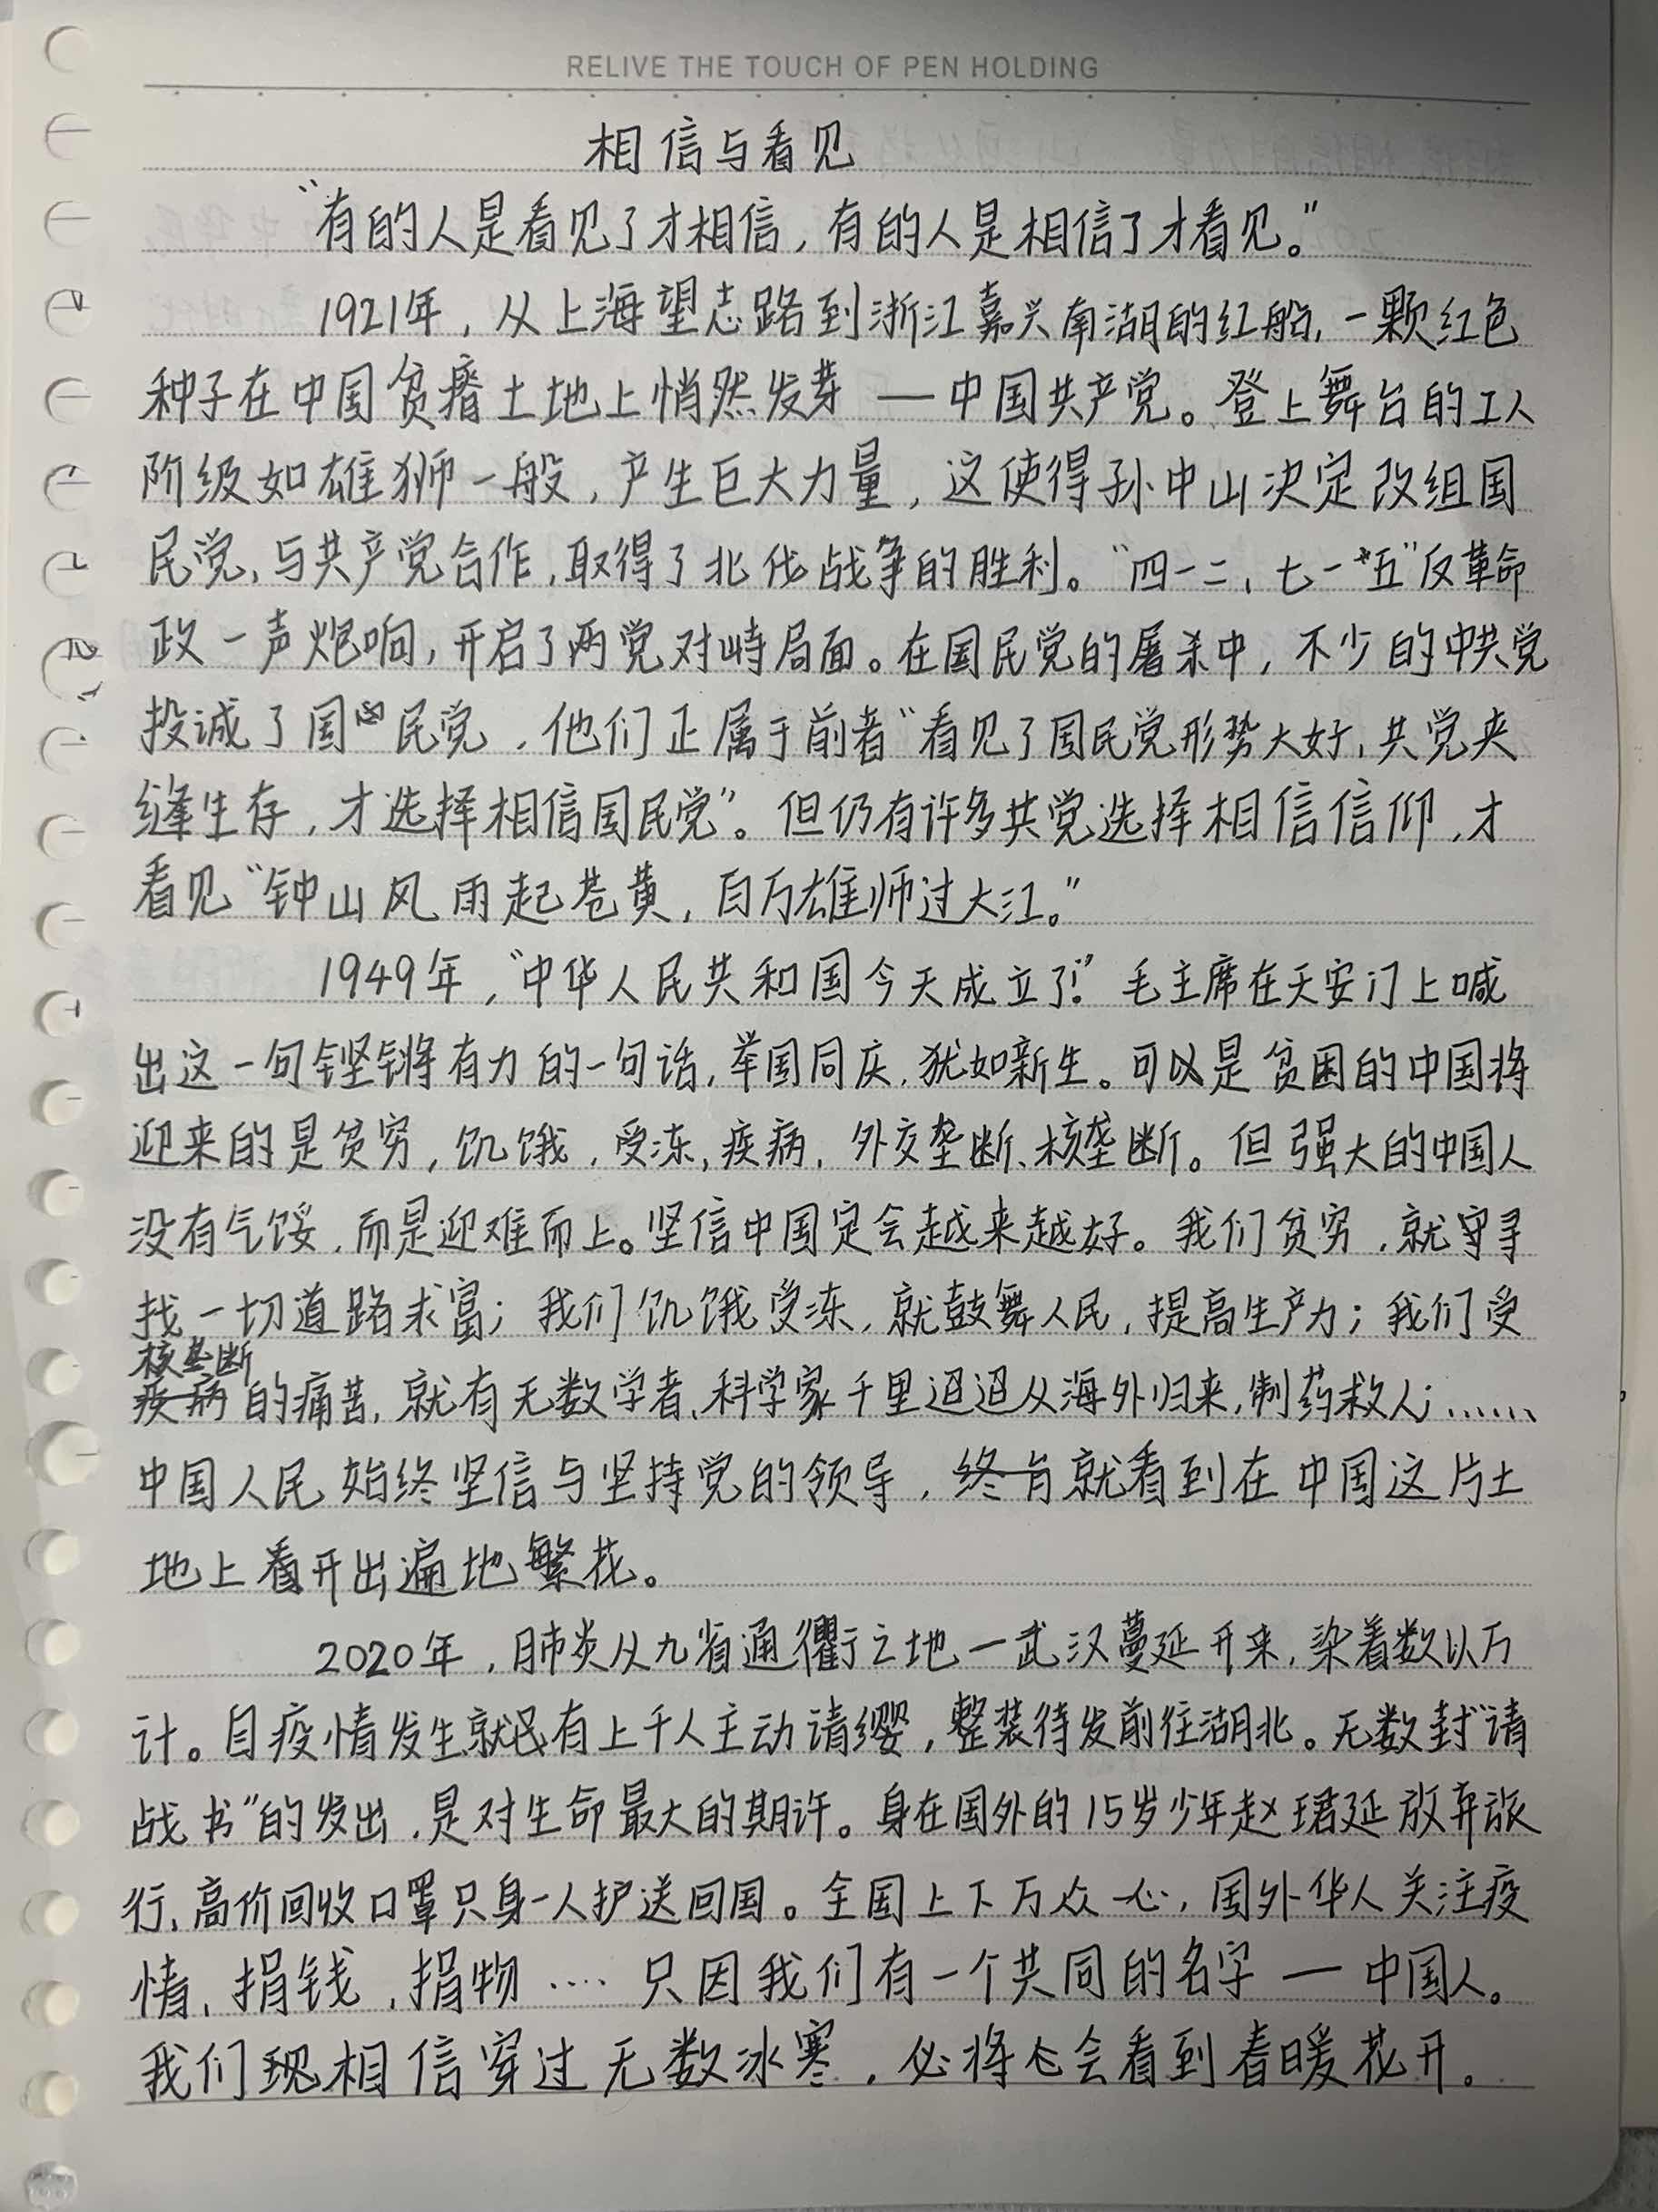 RELIVE THE TOUCH OF PEN HOLDING
相信与看见
“有的人是看见了才相信，有的人是相信了才看见。”
1921年，从上海望志路到浙江嘉兴南湖的红船，一颗红色
种子在中国贫瘠土地上悄然发芽 — 中国共产党。登上舞台的工人
阶级如雄狮一般，产生巨大力量，这使得孙中山决定改组国
民党，与共产党合作，取得了北伐战争的胜利。“四一二、七一五”反革命
政一声炮响，开启了两党对峙局面。在国民党的屠杀中，不少的中共党
投诚了国民党，他们正属于前者“看见了国民党形势大好，共党夹
缝生存，才选择相信国民党”。但仍有许多共党选择相信信仰，才
看见“钟山风雨起苍黄，百万雄师过大江。”
1949年，“中华人民共和国今天成立了！”毛主席在天安门上喊
出这一句铿锵有力的一句话，举国同庆，犹如新生。可以是贫困的中国将
迎来的是贫穷，饥饿，受冻，疾病，外交垄断、核垄断。但强大的中国人
没有气馁，而是迎难而上。坚信中国定会越来越好。我们贫穷，就寻
找一切道路求富；我们饥饿受冻，就鼓舞人民，提高生产力；我们受
核垄断
疾病的痛苦，就有无数学者、科学家千里迢迢从海外归来，制药救人；……
中国人民始终坚信与坚持党的领导，终有就看到在中国这片土
地上看开出遍地繁花。
2020年，肺炎从九省通衢之地一武汉蔓延开来，染着数以万
计。自疫情发生就有上千人主动请缨，整装待发前往湖北。无数封“请
战书”的发出，是对生命最大的期许。身在国外的15岁少年赵珺延放弃旅
行、高价回收口罩只身一人护送回国。全国上下万众一心，国外华人关注疫
情、捐钱，捐物…… 只因我们有一个共同的名字 — 中国人。
我们现相信穿过无数冰寒，必将会看到春暖花开。